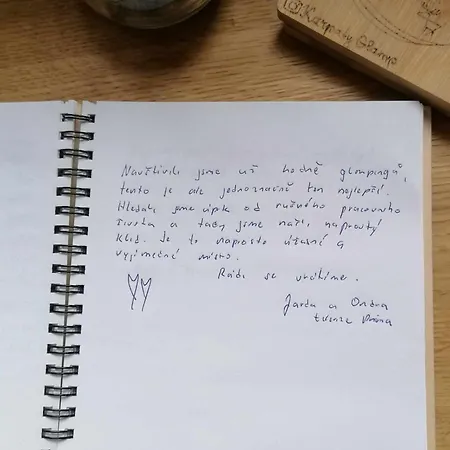 @Karpaty Glamp
Navštívili jsme už hodně glampingů,
tento je ale jednoznačně ten nejlepší.
Hledali jsme útěk od rušného pracovního
života a tady jsme našli naprostý
klid. Je to naprosto úžasné a
vyjímečné místo.
Rádi se vrátíme.
Jarda a Ondra